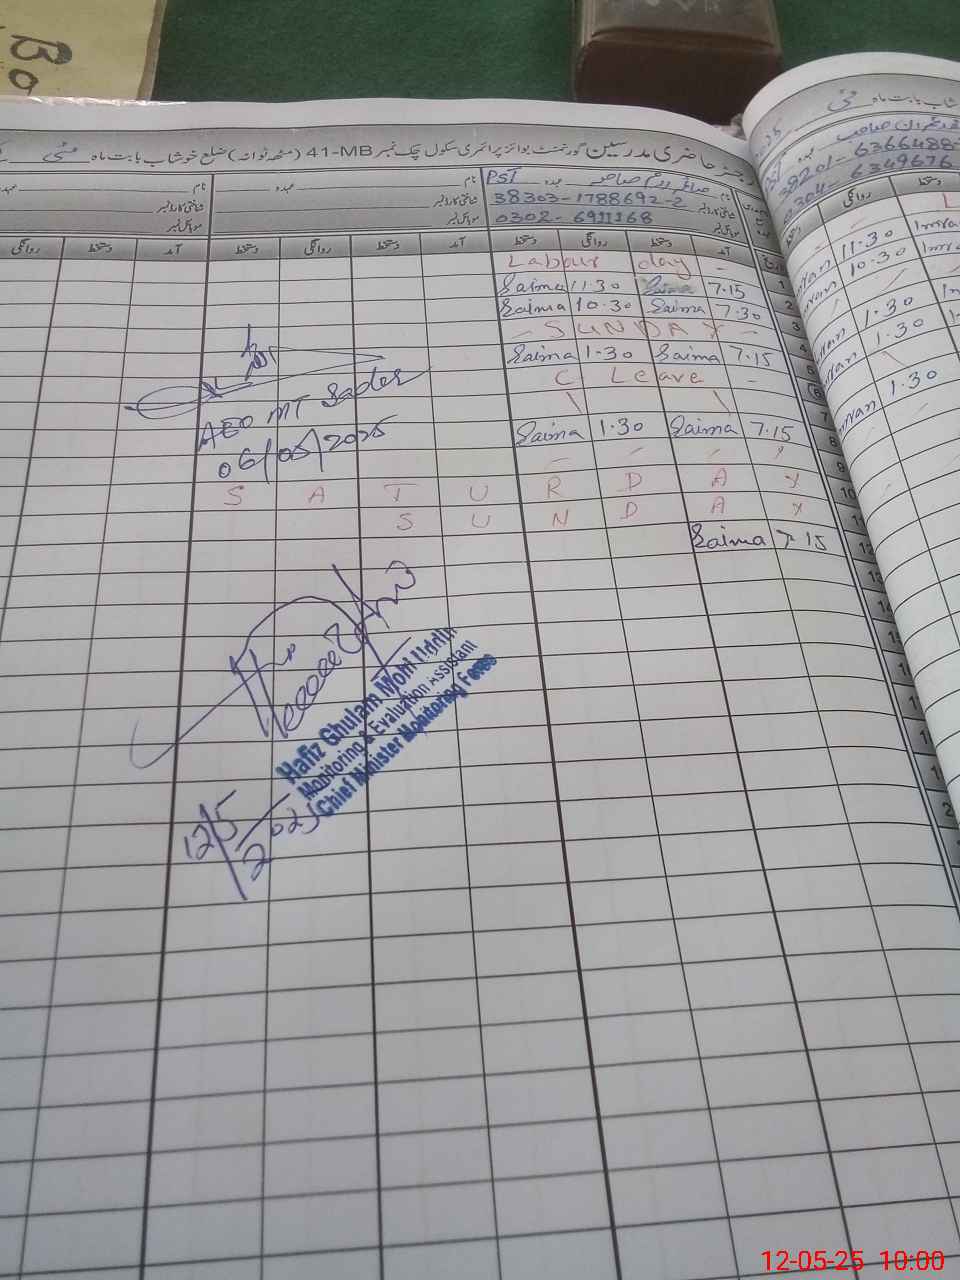 رجسٹر حاضری مدرسین گورنمنٹ بوائز پرائمری سکول چک نمبر 41-MB (مٹھہ ٹوانہ) ضلع خوشاب بابت ماہ مئی
نام عہدہ PST
شناختی کارڈ نمبر 38303-1788692-2
موبائل نمبر 0302-6911168
نام عہدہ
شناختی کارڈ نمبر
موبائل نمبر
آمد دستخط روانگی دستخط آمد دستخط روانگی دستخط
Labour day
Saima 11:30 Saima 7.15
Saima 10.30 Saima 7.30
SUNDAY
Saima 1.30 Saima 7.15
C Leave
Saima 1.30 Saima 7.15
S A T U R D A Y
S U N D A Y
Saima 7.15
AEO MT Sader
06/05/2025
Hafiz Ghulam Mohi Uddin
Monitoring & Evaluation Assistant
(Chief Minister Monitoring Force)
12/5/2025
بابت ماہ مئی
PST
38201-6366488
0304-6349676
دستخط روانگی
11.30
10.30
1.30
1.30
1.30
12-05-25 10:00